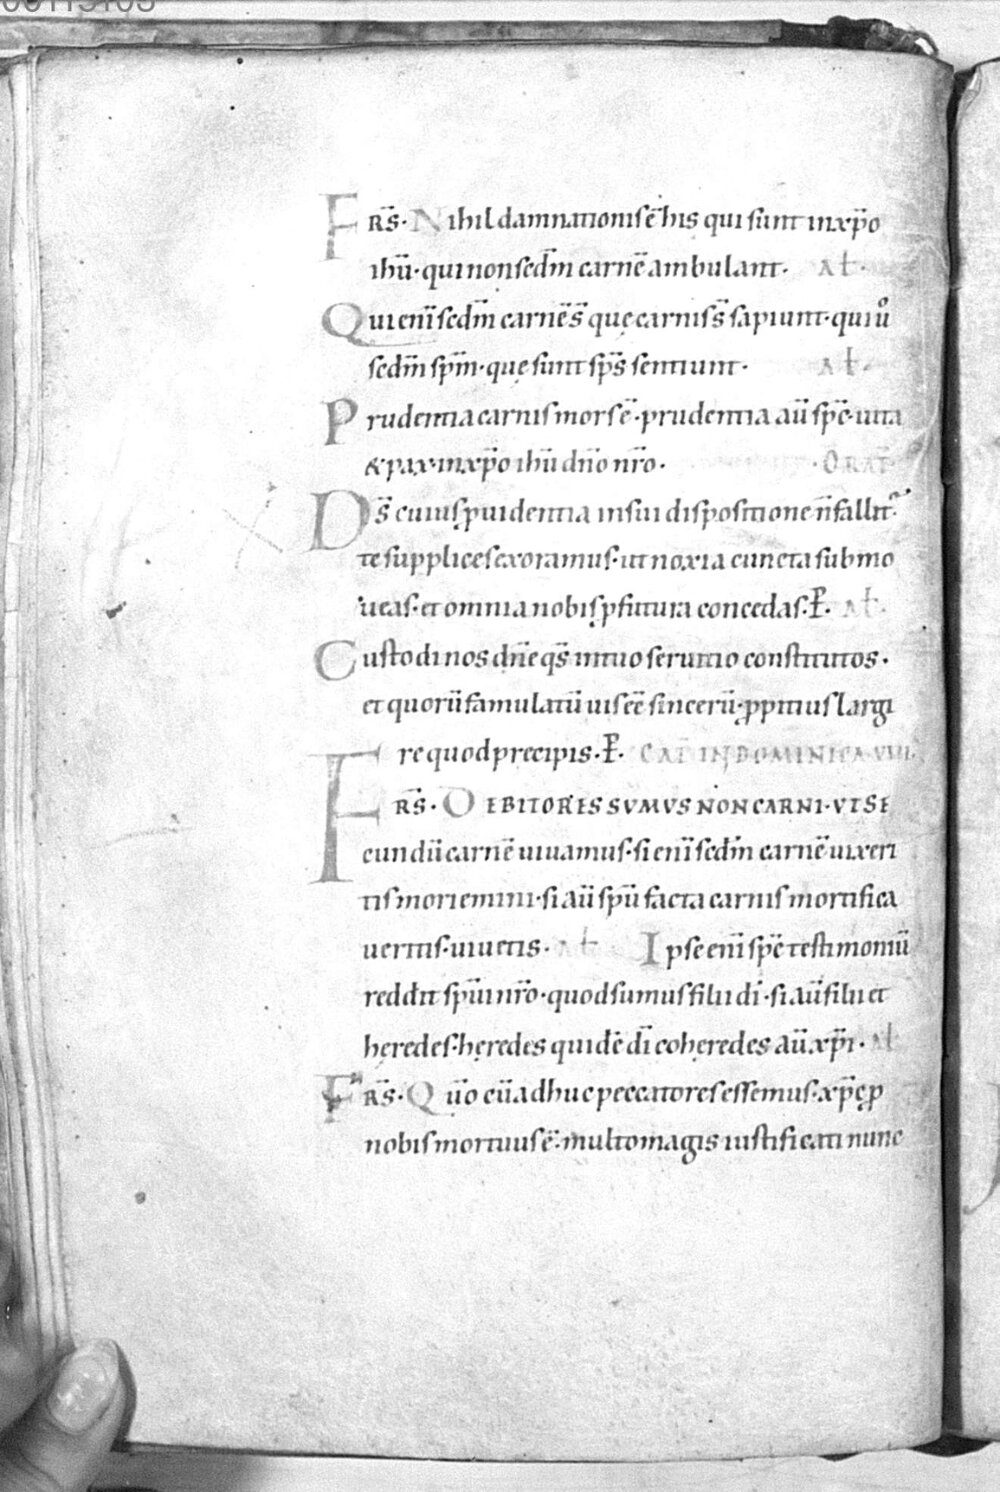 00115103
FRS̄· Nihil damnationis ē his qui sunt in xp̄o
ihū· qui non secdm̄ carnē ambulant· AƗ·
Qui eni̅ secdm̄ carnē s̄ que̜ carnis s̄ sapiunt· qui ů
secdm̄ spm̄· que̜ sunt sp̄s sentiunt· AƗ·
Prudentia carnis mors ē· prudentia aū sp̄c· uita
& pax· in xp̄o ihū dn̄o nr̄o· ·ORAT̄·
DS̄ cuius ꝓuidentia in sui dispositione n̄ fallit᷑·
te supplices exoramus· ut noxia cuncta submo
ueas· et omnia nobis ꝓfutura concedas· P̄· AƗ·
Custodi nos dn̄e qs̄ in tuo seruitio constitutos·
et quorū famulatū uis eē sincerū· ꝓpitius largi
re quod precipis· P̄· CAT̄ IN DOMINICA VIII·
FRS̄· DEBITORES SVMVS NON CARNI· VT SE
cundū carnē uiuamus· si eni̅ secdm̄ carnē uixeri
tis moriemini· si aū spū facta carnis mortifica
ueritis· uiuetis· AƗ Ipse eni̅ sp̄c testimoniū
reddit spūi nr̄o· quod sumus filii di̅· si aū filii et
he̜redes· he̜redes quidē di̅ cohe̜redes aū xp̄i· AƗ
FRS̄· Qūo cū adhuc peccatores essemus· xp̄c ꝓ
nobis mortuus ē· multo magis iustificati nunc